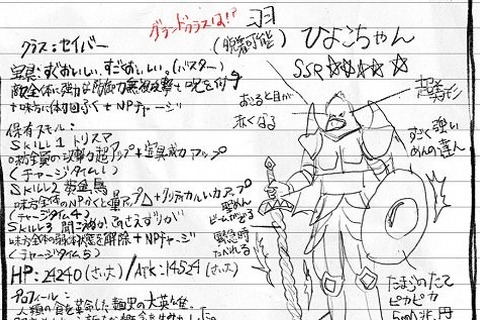 グランドクラスは!?
羽
(脱着可能)
ひよこちゃん
SSR☆☆☆☆☆
クラス:セイバー
宝具:すぐおいしい、すごくおいしい。(バスター)
敵全体に強力な防御力無視攻撃+呪を付与
+味方に体力回ふく+NPチャージ
保有スキル:
SKILL1 カリスマ
味方全員の攻撃力超アップ+宝具威力アップ
(チャージタイム4)
SKILL2 黄金鳥
味方全体のNPかくとく量アップ+クリティカルい力アップ
(チャージタイム4)
SKILL3
味方全体の弱体状態を解除+NPチャージ
(チャージタイム5)
HP:24240(さい大)/Atk:14524(さい大)
プロフィール:
人類の食を革命した麺里の大英雄。
おこると目が
赤くなる
超美形
すごく強い
めんの達人
聖めん
ビームがでる
緊急時
たべれる
たまごのたて
ピカピカ